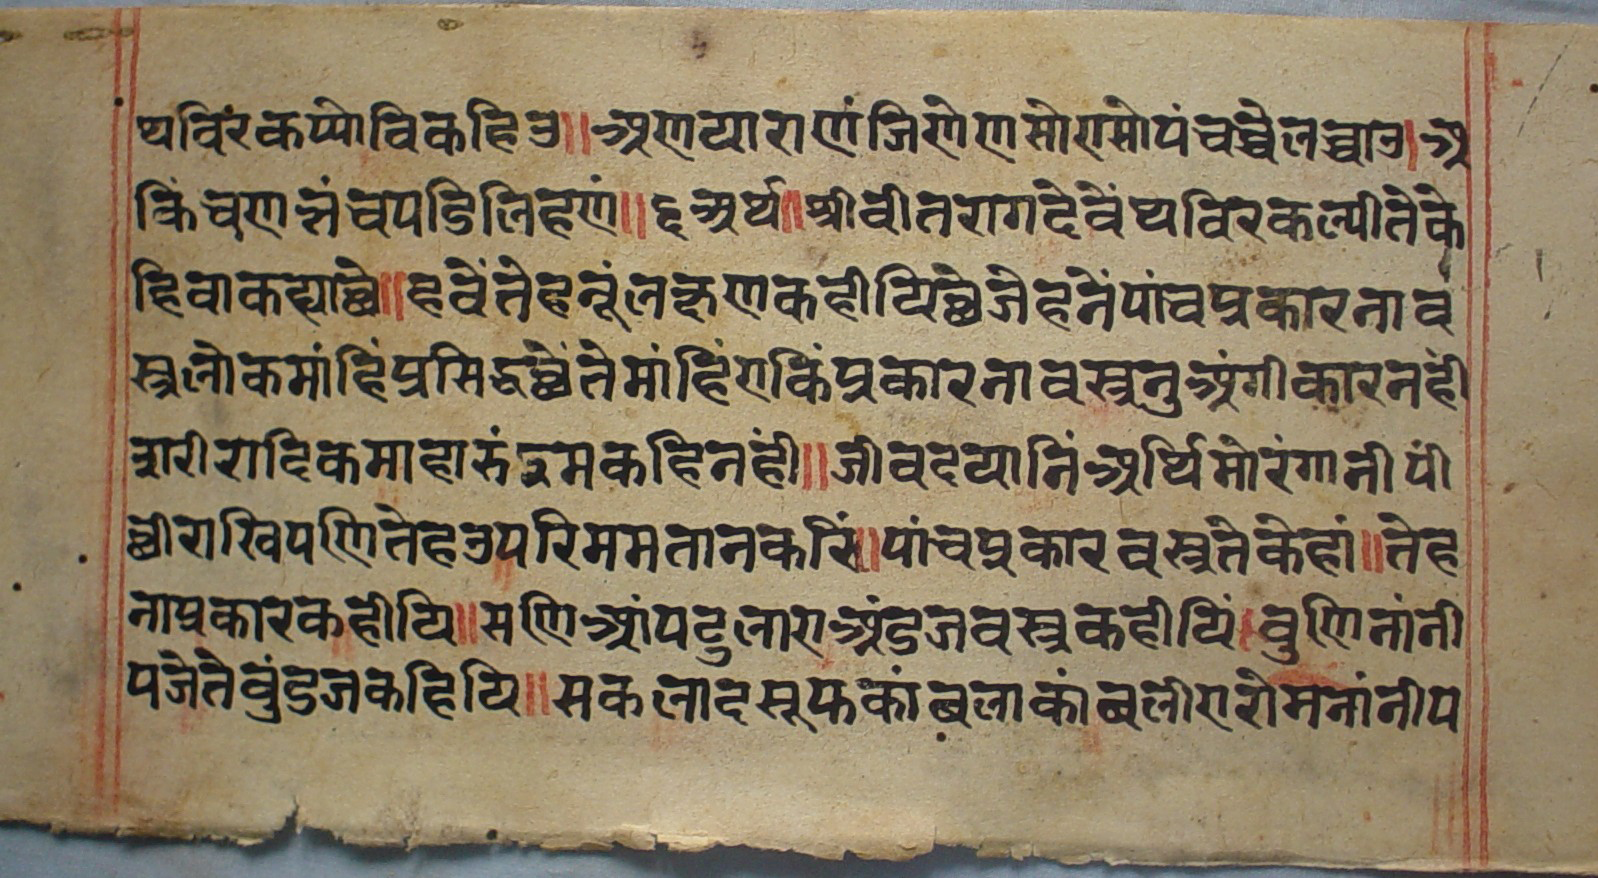 थविरकप्पोविकहिउ॥अणयाराणंजिणेणसोणमोपंचच्चेलच्चाउ।अ
किंचणत्तंचपडिलिहणं॥६अर्थ॥श्रीवीतरागदेवेंथविरकल्पीतेके
हिवाकह्याछे॥हवेंतेहनूंलक्षणकहीयिछेजेहनेंपांचप्रकारनाव
स्त्रलोकमांहिंप्रसिद्धछेंतेमांहिंएकिंप्रकारनावस्त्रनुअंगीकारनहीं
शरीरादिकमाहारुंइमकहिनहीं॥जीवदयानिंअर्थिमोरंगानीपीं
छीराखिपणितेहउपरिममतानकरिं॥पांचप्रकारवस्त्रतेकेहां॥तेह
नाप्रकारकहीयि॥सणिआंपटुलाएअंडजवस्त्रकहीयिं।वुणिनांनी
पजेतेवुंडजकहियि॥सकलादसूफकांबलाकांबलीएरोमनांनीप